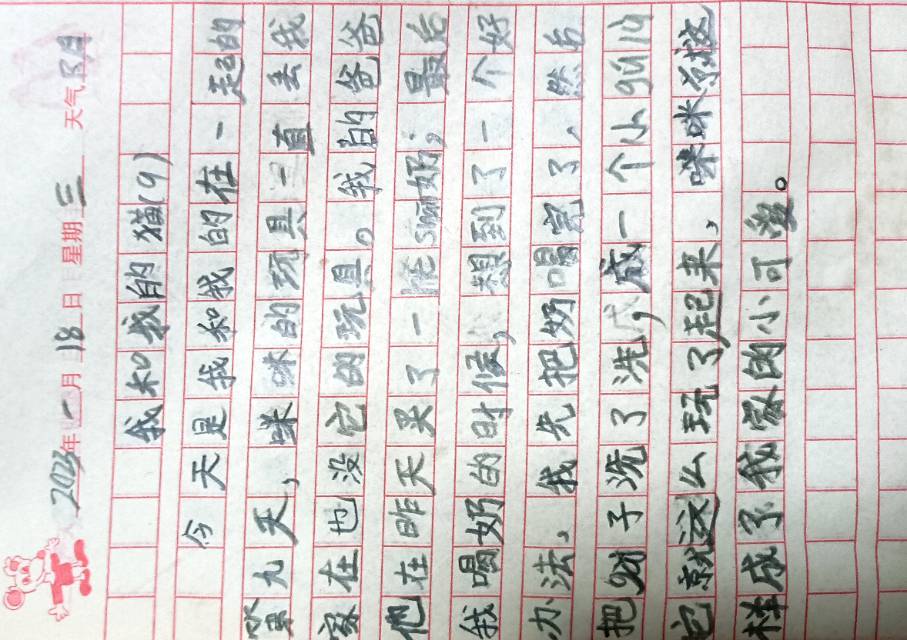 2023年一月18日 星期三 天气
我和我的猫(9)
今天是我和我的在一起的
第九天,咪咪的玩具一直丢我
家在也没它的玩具。我的爸爸
他在昨天买了一瓶奶;最后
我喝奶的时候,想到了一个好
办法。我先把奶喝完了,然后
把gai子洗了洗,成一个小
它就这么玩了起来,咪咪就这
样成了我家的小可爱。